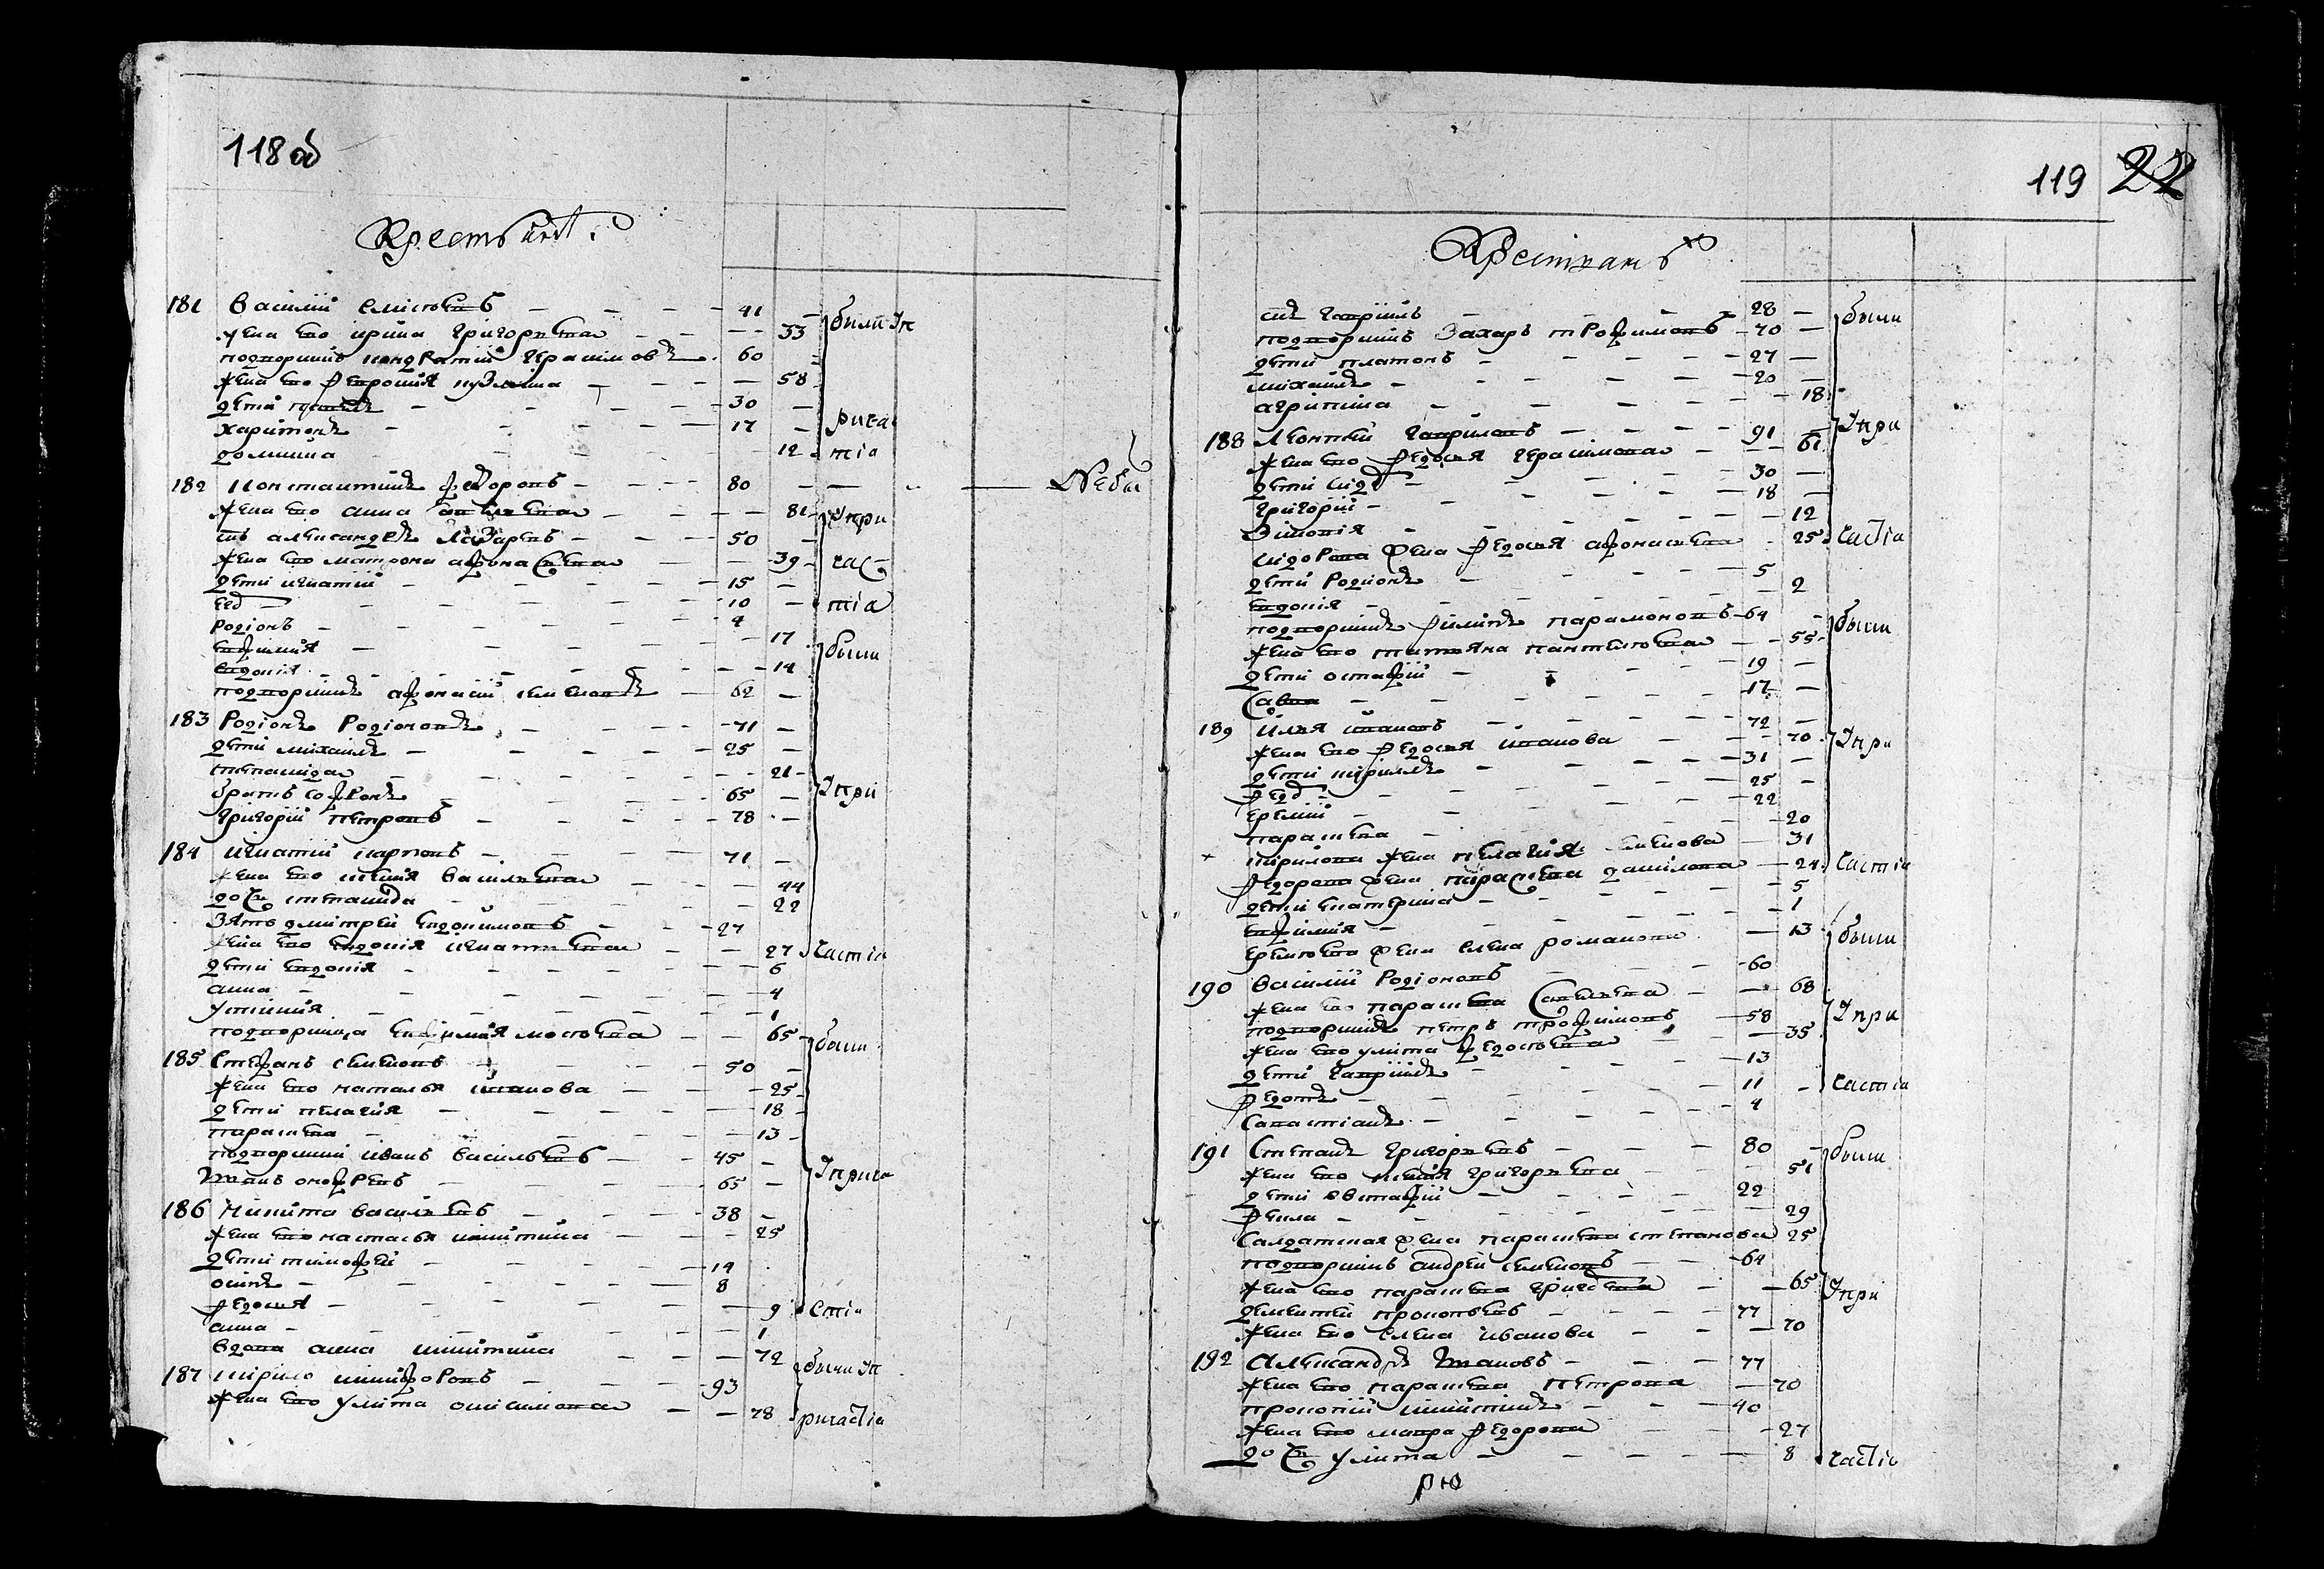 118об
Крестьянъ
181 Василий Елисѣевъ — 41 — были у п
жена его Ирина Григорьева — 33
подворникъ Кондратий Герасимовъ 60 —
жена его Февронія Кузмина — 58
дети Павелъ — 30 —
Харитонъ — 17 — рича
Домника — 12 стіа
182 Константинъ Федоровъ — 80 — — Небы
жена его Анна Савельева — 81 у при
Александръ Лазаревъ — 50 —
жена его Матрона Афонасьева — 39 час
дети Игнатий — 15 —
10 — тіа
Родіонъ — 4
Евфимия — 17 были
Евдокія — 14
подворникъ Афонасий Семеновъ — 62 —
183 Родіонъ Родіоновъ — 71 —
дети Михаилъ — 25 —
Степанида — 21
братъ Софронъ — 65 — у при
Григорій Петровъ — 78 —
184 Игнатий Карповъ — 71 —
жена его Ксения Васильева — 44
дочь Степанида — 22
зять Дмитрей Евдокимовъ — 27
жена его Евдокія Игнатьева — 27 частіа
дети Евдокія — 6
Анна — 4
Устиния — 1
подворница Евфимия — 65 были
185 Стефанъ Семеновъ — 50 —
жена его Наталья Иванова — 25
дети Пелагия — 18
Парасьева — 13
подворники Иванъ Васильевъ — 45 —
Иванъ Онофреевъ — 65 — у прича
186 Никита Васильевъ — 38 —
жена его Настасья Никитина — 25
дети Тимофей — 14
Осипъ — 8
Федосия — 9 стіа
Анна — 1
Вдова Анна Никитина — 72 были у п
187 Кирило Никифоровъ — 93
жена его Улита Онисимова — 78 ричастіа
119 22
Крестьянъ
Гавриилъ — 28 — были
подворникъ Захаръ Трофимовъ — 70 —
дети Платонъ — 27 —
Михаилъ — 20 —
Агрипина — 18
188 Леонтий Гавриловъ — 91 — у при
жена его Федосья Герасимова — 61
дети — 30 —
Григорий — 18 —
Зиновія — 12
Сидорова жена Федосья Афонасьева — 25 частіа
дети Родионъ — 5
Евдокія — 2
подворникъ Филипъ Парамоновъ — 64 были
жена его Татьяна Пантелеева — 55
дети Остафий — 19 —
Савва — 17 —
189 Илья Ивановъ — 72 —
жена его Федосья Иванова — 70 у при
дети Кирилъ — 31 —
25 —
Еремий — 22
Парасьева — 20
Кирилова жена Пелагия Семенова — 31
Федорова жена Парасьева Данилова — 24 частіа
дети Катерина — 5
Евфимия — 1
Еремеева жена Елена Романова — 13 были
190 Василий Родіоновъ — 60
жена его Парасьева Савельева — 68
подворникъ Петръ Трофимовъ — 58 у при
жена его Улита Федосеева — 35
дети Гавриилъ — 13
Федотъ — 11 — частіа
Савастіанъ — 4
191 Степанъ Григорьевъ — 80 — были
жена его Ксения Григорьева — 51
дети Евстафий — 22
Фекла — 29
Салдатская жена Парасьева Степанова 25
подворникъ Андрей Семеновъ — 64
жена его Парасьева — 65 у при
Дементей Прокопьевъ — 77
жена его Елена Иванова — 70
192 Александръ Ивановъ — 77
жена его Парасьева Петрова — 70
Прокопий Никитинъ — 40
жена его Мавра Федорова — 27
дочь Улита — 8 частіа
рю